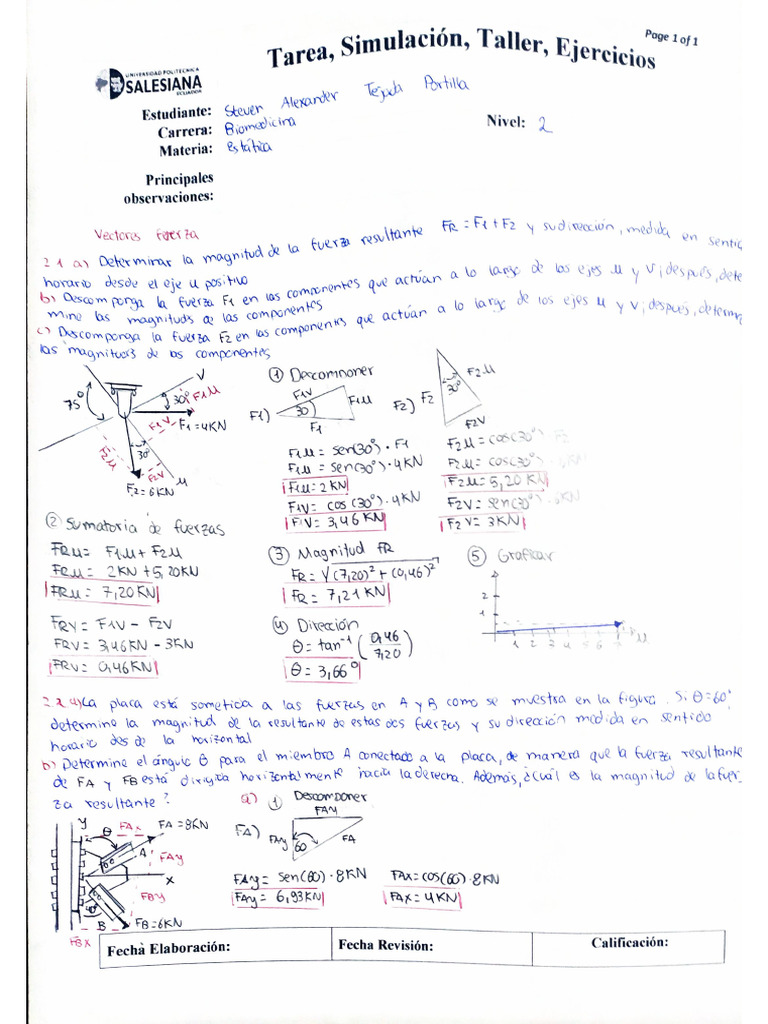 Page 1 of 1
Tarea, Simulación, Taller, Ejercicios
UNIVERSIDAD POLITÉCNICA
SALESIANA
ECUADOR
Estudiante: Steven Alexander Tejada Portilla
Carrera: Biomedicina
Nivel: 2
Materia: Estática
Principales
observaciones:
Vectores fuerza
2.1 a) Determinar la magnitud de la fuerza resultante FR = F1 + F2 y su dirección, medida en sentid
horario desde el eje u positivo
b) Descomponga la fuerza F1 en las componentes que actúan a lo largo de los ejes u y v; después, dete
mine las magnitudes de las componentes
c) Descomponga la fuerza F2 en las componentes que actúan a lo largo de los ejes u y v; después, determ
las magnitudes de las componentes
75°
V
30°
F1u
F1v
F1 = 4KN
F2u
30°
F2v
u
F2 = 6KN
① Descomponer
F1)
F1v
30
F1u
F1
F1u = sen(30°) · F1
F1u = sen(30°) · 4KN
F1u = 2KN
F1v = cos(30°) · 4KN
F1v = 3,46KN
F2)
F2
30°
F2u
F2v
F2u = cos(30°) F2
F2u = cos(30°) · 6KN
F2u = 5,20 KN
F2v = sen(30°) · 6KN
F2v = 3KN
② Sumatoria de fuerzas
FRu = F1u + F2u
FRu = 2KN + 5,20KN
FRu = 7,20KN
FRV = F1v - F2v
FRV = 3,46KN - 3KN
FRV = 0,46KN
③ Magnitud FR
FR = √(7,20)² + (0,46)²
FR = 7,21 KN
④ Dirección
θ = tan⁻¹ (0,46/7,20)
θ = 3,66°
⑤ Graficar
2
1
1 2 3 4 5 6 7 8 u
2.2 a) La placa está sometica a las fuerzas en A y B como se muestra en la figura. Si θ = 60°
determine la magnitud de la resultante de estas dos fuerzas y su dirección medida en sentido
horario des de la horizontal
b) Determine el ángulo θ para el miembro A conectado a la placa, de manera que la fuerza resultante
de FA y FB está dirigida horizontalmente hacia la derecha. Además, ¿cuál es la magnitud de la fuer
za resultante?
y
θ
FAx
FA = 8KN
A
FAy
x
FBy
40°
B
FB = 6KN
FBX
a) ① Descomponer
FA)
FAx
FAy
60
FA
FAy = sen(60) · 8KN
FAy = 6,93KN
FAx = cos(60) · 8KN
FAX = 4KN
Fecha Elaboración:
Fecha Revisión:
Calificación: